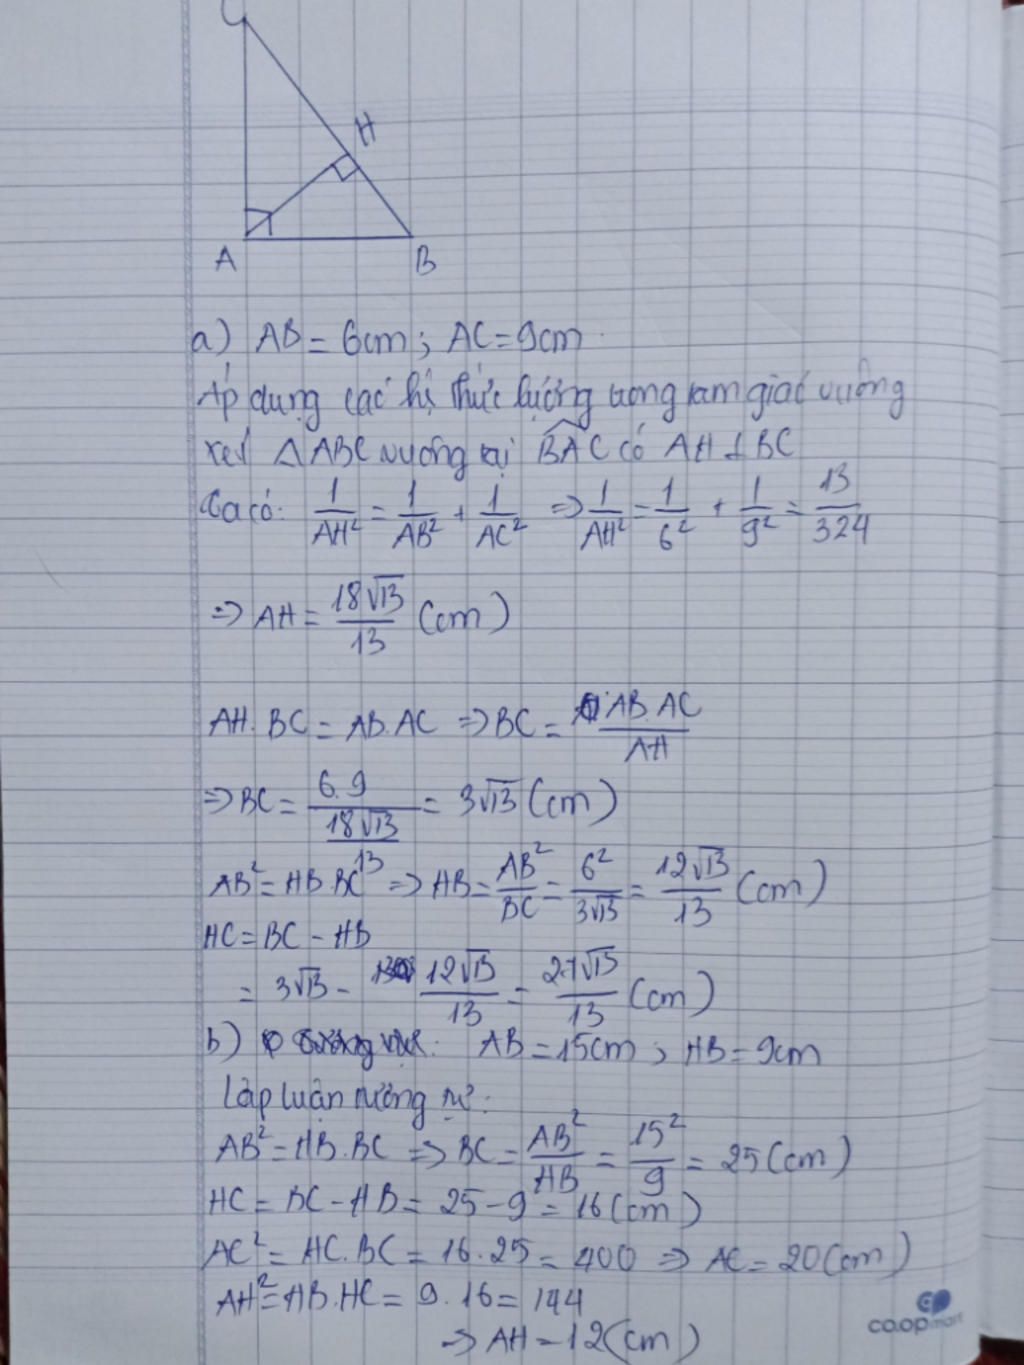 C
H
A
B
a) AB = 6cm ; AC = 9cm
Áp dụng các hệ thức lượng trong tam giác vuông
xét △ABC vuông tại BAC có AH ⊥ BC
Ta có: 1/AH² = 1/AB² + 1/AC² => 1/AH² = 1/6² + 1/9² = 13/324
=> AH = 18√13/13 (cm)
AH. BC = AB. AC => BC = AB. AC/AH
=> BC = 6.9/(18√13/13) = 3√13 (cm)
AB² = HB. BC => HB = AB²/BC = 6²/3√13 = 12√13/13 (cm)
HC = BC - HB
= 3√13 - 12√13/13 = 27√13/13 (cm)
b) AB = 15cm ; HB = 9cm
Lập luận tương tự:
AB² = HB. BC => BC = AB²/HB = 15²/9 = 25 (cm)
HC = BC - HB = 25 - 9 = 16 (cm)
AC² = HC. BC = 16. 25 = 400 => AC = 20 (cm)
AH² = HB. HC = 9. 16 = 144
=> AH = 12 (cm)
co.opmart